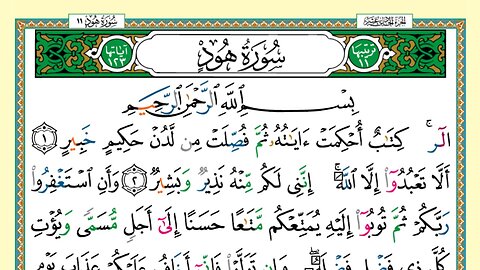 سُورَةُ هُودٍ ١١
سُورَةُ هُودٍ
ترتيبها ١١
آياتها ١٢٣
بِسْمِ اللَّهِ الرَّحْمَٰنِ الرَّحِيمِ
الٓر ۚ كِتَٰبٌ أُحْكِمَتْ ءَايَٰتُهُۥ ثُمَّ فُصِّلَتْ مِن لَّدُنْ حَكِيمٍ خَبِيرٍ ١
أَلَّا تَعْبُدُوٓا۟ إِلَّا ٱللَّهَ ۚ إِنَّنِى لَكُم مِّنْهُ نَذِيرٌ وَبَشِيرٌ ٢ وَأَنِ ٱسْتَغْفِرُوا۟
رَبَّكُمْ ثُمَّ تُوبُوٓا۟ إِلَيْهِ يُمَتِّعْكُم مَّتَٰعًا حَسَنًا إِلَىٰٓ أَجَلٍ مُّسَمًّى وَيُؤْتِ
كُلَّ ذِى فَضْلٍ فَضْلَهُۥ ۖ وَإِن تَوَلَّوْا۟ فَإِنِّىٓ أَخَافُ عَلَيْكُمْ عَذَابَ يَوْمٍ